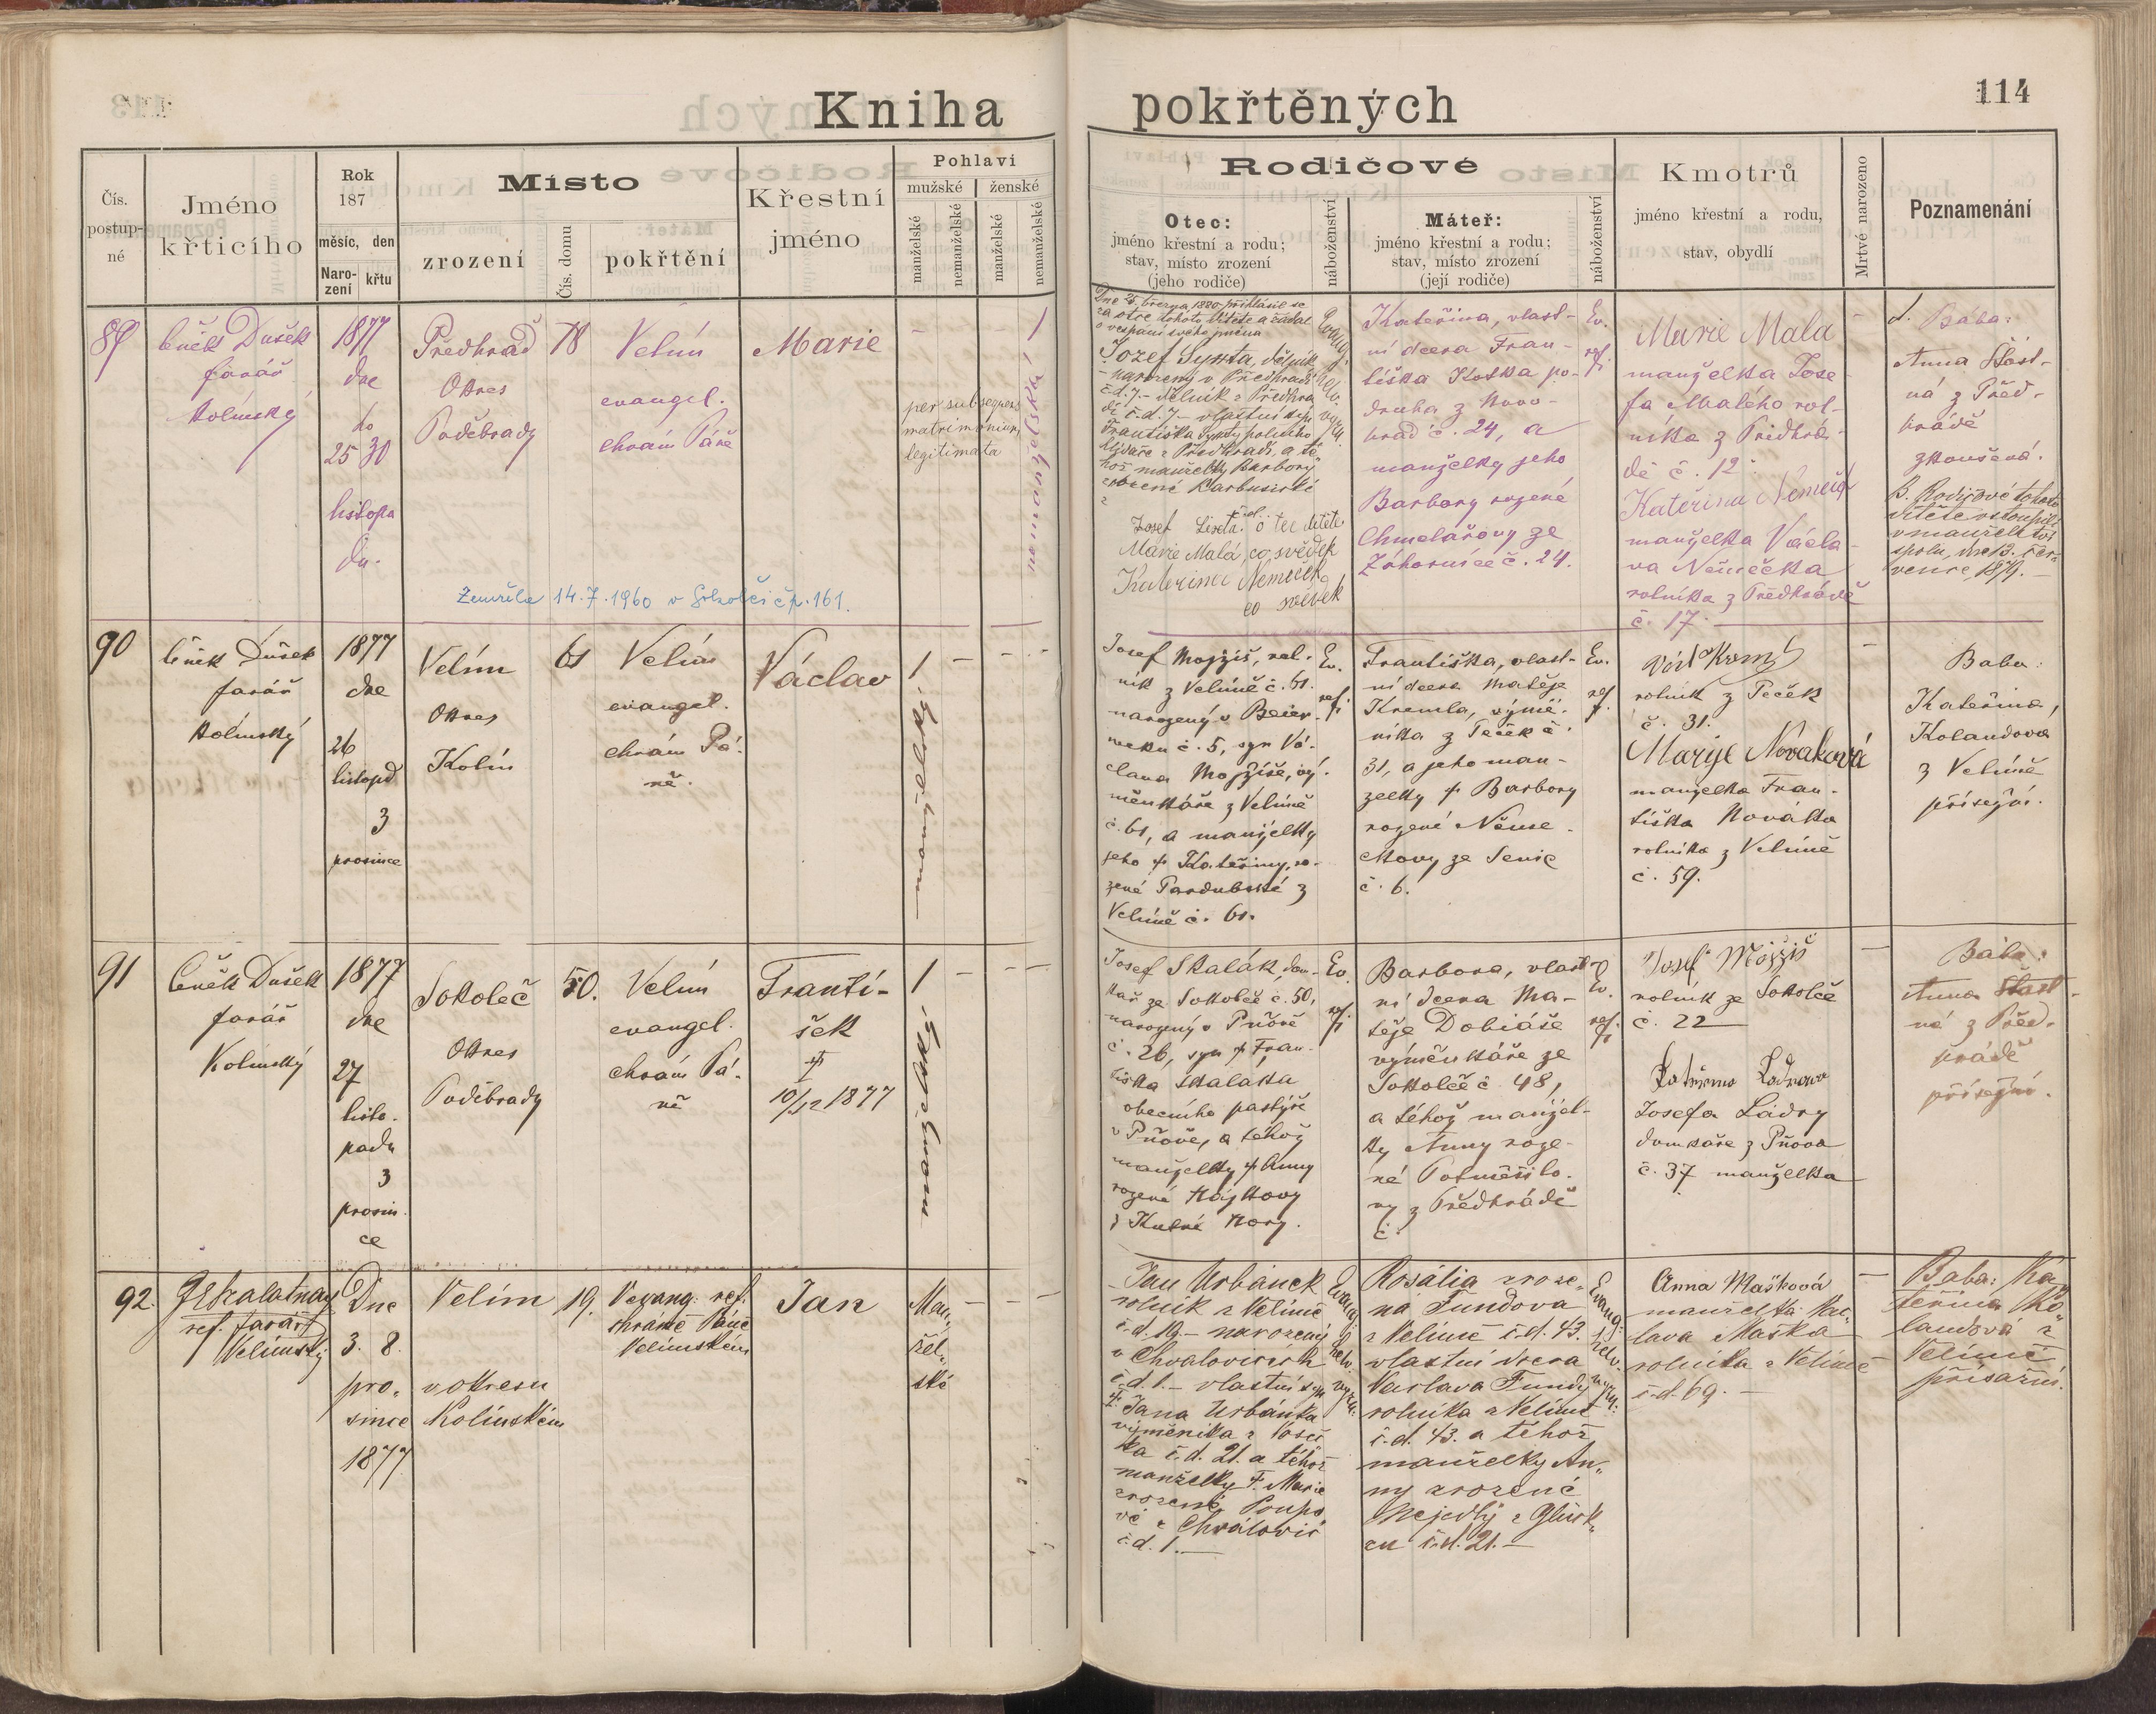 Kniha pokřtěných
114
Čís. postup-né
Jméno křticího
Rok 187
měsíc, den
Naro-zení
křtu
Místo
zrození
Čís. domu
pokřtění
Křestní jméno
Pohlaví
mužské
ženské
manželské
nemanželské
manželské
nemanželské
Rodičové
Otec:
jméno křestní a rodu;
stav, místo zrození
(jeho rodiče)
náboženství
Máteř:
jméno křestní a rodu;
stav, místo zrození
(její rodiče)
náboženství
Kmotrů
jméno křestní a rodu,
stav, obydlí
Mrtvé narozeno
Poznamenání
89
Čeněk Dušek
farář
kolínský
1877
dne
25 30
listopa
du.
Předhrad
Okres
Poděbrady
78
Velím
evangel.
chrám Páně
Marie
per subsequens
matrimonium
legitimata
nemanželská 1
Dne 25. března 1880 přihlásil se
za otce tohoto dítěte a žádal
o vepsání svého jména
Jozef Synta, dělník
narozený v Předhradí
č.d. 7. – dělník z Předhra
dí č.d. 7 – vlastní syn
Františka Synty polního
hlídače z Předhradí, a té
hož manželky Barbory
zrozené Karbusické
otec dítěte
Marie Malá, co svědek
Kateřina Nemeček
co svědek
Kateřina, vlast-
ní dcera Fran-
tiška Kotka po-
druha z Novo-
hrad č. 24, a
manželky jeho
Barbory rozené
Chmelařovy ze
Záhornice č. 24.
Ev.
ref.
Marie Mala
manželka Jose-
fa Malého rol-
níka z Předhra-
dě č. 12.
Kateřina Nemeček
manželka Václa-
va Němečka
rolníka z Předhradě
č. 17.
A. Baba:
Anna Šťast-
ná z Před-
hrádě
zkoušená.
B. Rodičové tohoto
dítěte vstoupili
v manželství
spolu, dne 13. čer-
vence, 1879. –
Zemřela 14.7.1960 v Sokolči čp. 161.
90
Čeněk Dušek
farář
kolínský
1877
dne
26
listopd
3
prosince
Velím
Okres
Kolín
61
Velím
evangel.
chrám Pá-
ně.
Václav
1
manželský
Josef Mojžíš, rol-
ník z Velimě č. 61.
narozený v Beier-
wecku č. 5, syn Vá-
clava Mojžíše, vý-
měnkáře z Velimě
č. 61, a manželky
jeho † Kateřiny, ro-
zené Pardubské z
Velimě č. 61.
Ev.
ref.
Františka, vlast-
ní dcera Matěje
Kremla, výmě-
níka z Peček č.
31, a jeho man-
želky † Barbory
rozené Něme-
čkovy ze Senic
č. 6.
Ev.
ref.
rolník z Peček
č. 31.
Marye Nováková
manželka Fran-
tiška Nováka
rolníka z Velimě
č. 59.
Baba:
Kateřina
Kolandová
z Velimě
přísežní.
91
Čeněk Dušek
farář
Kolínský
1877
dne
27
listo-
padu
3
prosin-
ce
Sokoleč
Okres
Poděbrady
50.
Velím
evangel.
chrám Pá-
ně
Franti-
šek
†
10/12 1877
1
manželský
Josef Skalák dom-
kář ze Sokolče č. 50,
narozený v Pňově
č. 26, syn † Fran-
tiška Skaláka
obecního pastýře
v Pňově, a téhož
manželky † Anny
rozené Hájkovy
z Kutné Hory.
Ev.
ref.
Barbora, vlast-
ní dcera Ma-
těje Dobiáše
výměnkáře ze
Sokolče č. 48,
a téhož manžel-
ky Anny roze-
né Potměšilo-
vy z Předhrádě
č.
Ev.
ref.
Josef Mojžíš
rolník ze Sokolče
č. 22
Josefa Ládry
domkáře z Pňova
č. 37 manželka
Bába:
Anna Šťast-
ná z Před-
hrádě
přísežní.
92.
ref. farář
Velimský
Dne
3. 8.
pro-
since
1877
Velím
v okresu
Kolínském
19.
V evang. ref.
chrámě Páně
Velimském
Jan
Man-
žel-
ské
Jan Urbánek
rolník z Velimě
č.d. 19. – narozený
v Chvalovicích
č.d. 1. – vlastní syn
†. Jana Urbánka
výměníka z Voseč
ka č.d. 21. a téhož
manželky †. Marie
zrozené Poupo
vé z Chvalovic
č.d. 1. –
Evang.
helv.
vyzn.
Rosália zroze-
ná Fundova
z Velimě č.d. 43.
vlastní dcera
Václava Fundy
rolníka z Velimě
č.d. 43. a téhož
manželky An-
ny zrozené
Nejedlý z Glück-
zu č.d. 21. –
Evang.
helv.
vyzn.
Anna Mašková
manželka Vác-
lava Maška
rolníka z Velimě
č.d. 69. –
Baba: Ka-
teřina Ko
landová z
Velimě
přísažní.